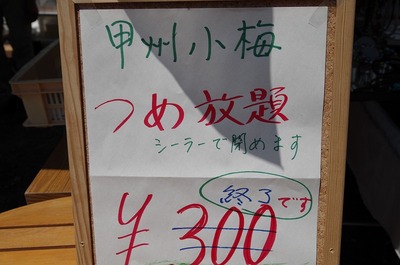 甲州小梅
つめ放題
シーラーで閉めます
終了です
¥300